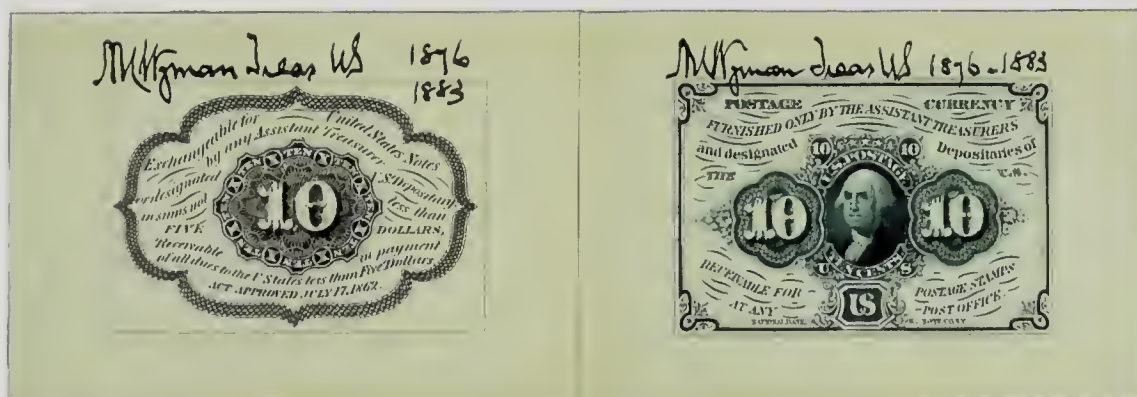 Treas US 1876
1883
Exchangeable for United States Notes
by any Assistant Treasurer
or designated U.S. Depositary
in sums not less than
FIVE DOLLARS,
Receivable in payment
of all dues to the U. States less than Five Dollars.
ACT APPROVED JULY 17, 1862.
TEN TEN
10
Treas US 1876-1883
POSTAGE CURRENCY
FURNISHED ONLY BY THE ASSISTANT TREASURERS
and designated Depositaries of
THE U.S.
10 10
U.S. POSTAGE
10 10
TEN CENTS
U S
RECEIVABLE FOR POSTAGE STAMPS
AT ANY US POST OFFICE.
NATIONAL BANK NOTE CO. N.Y.